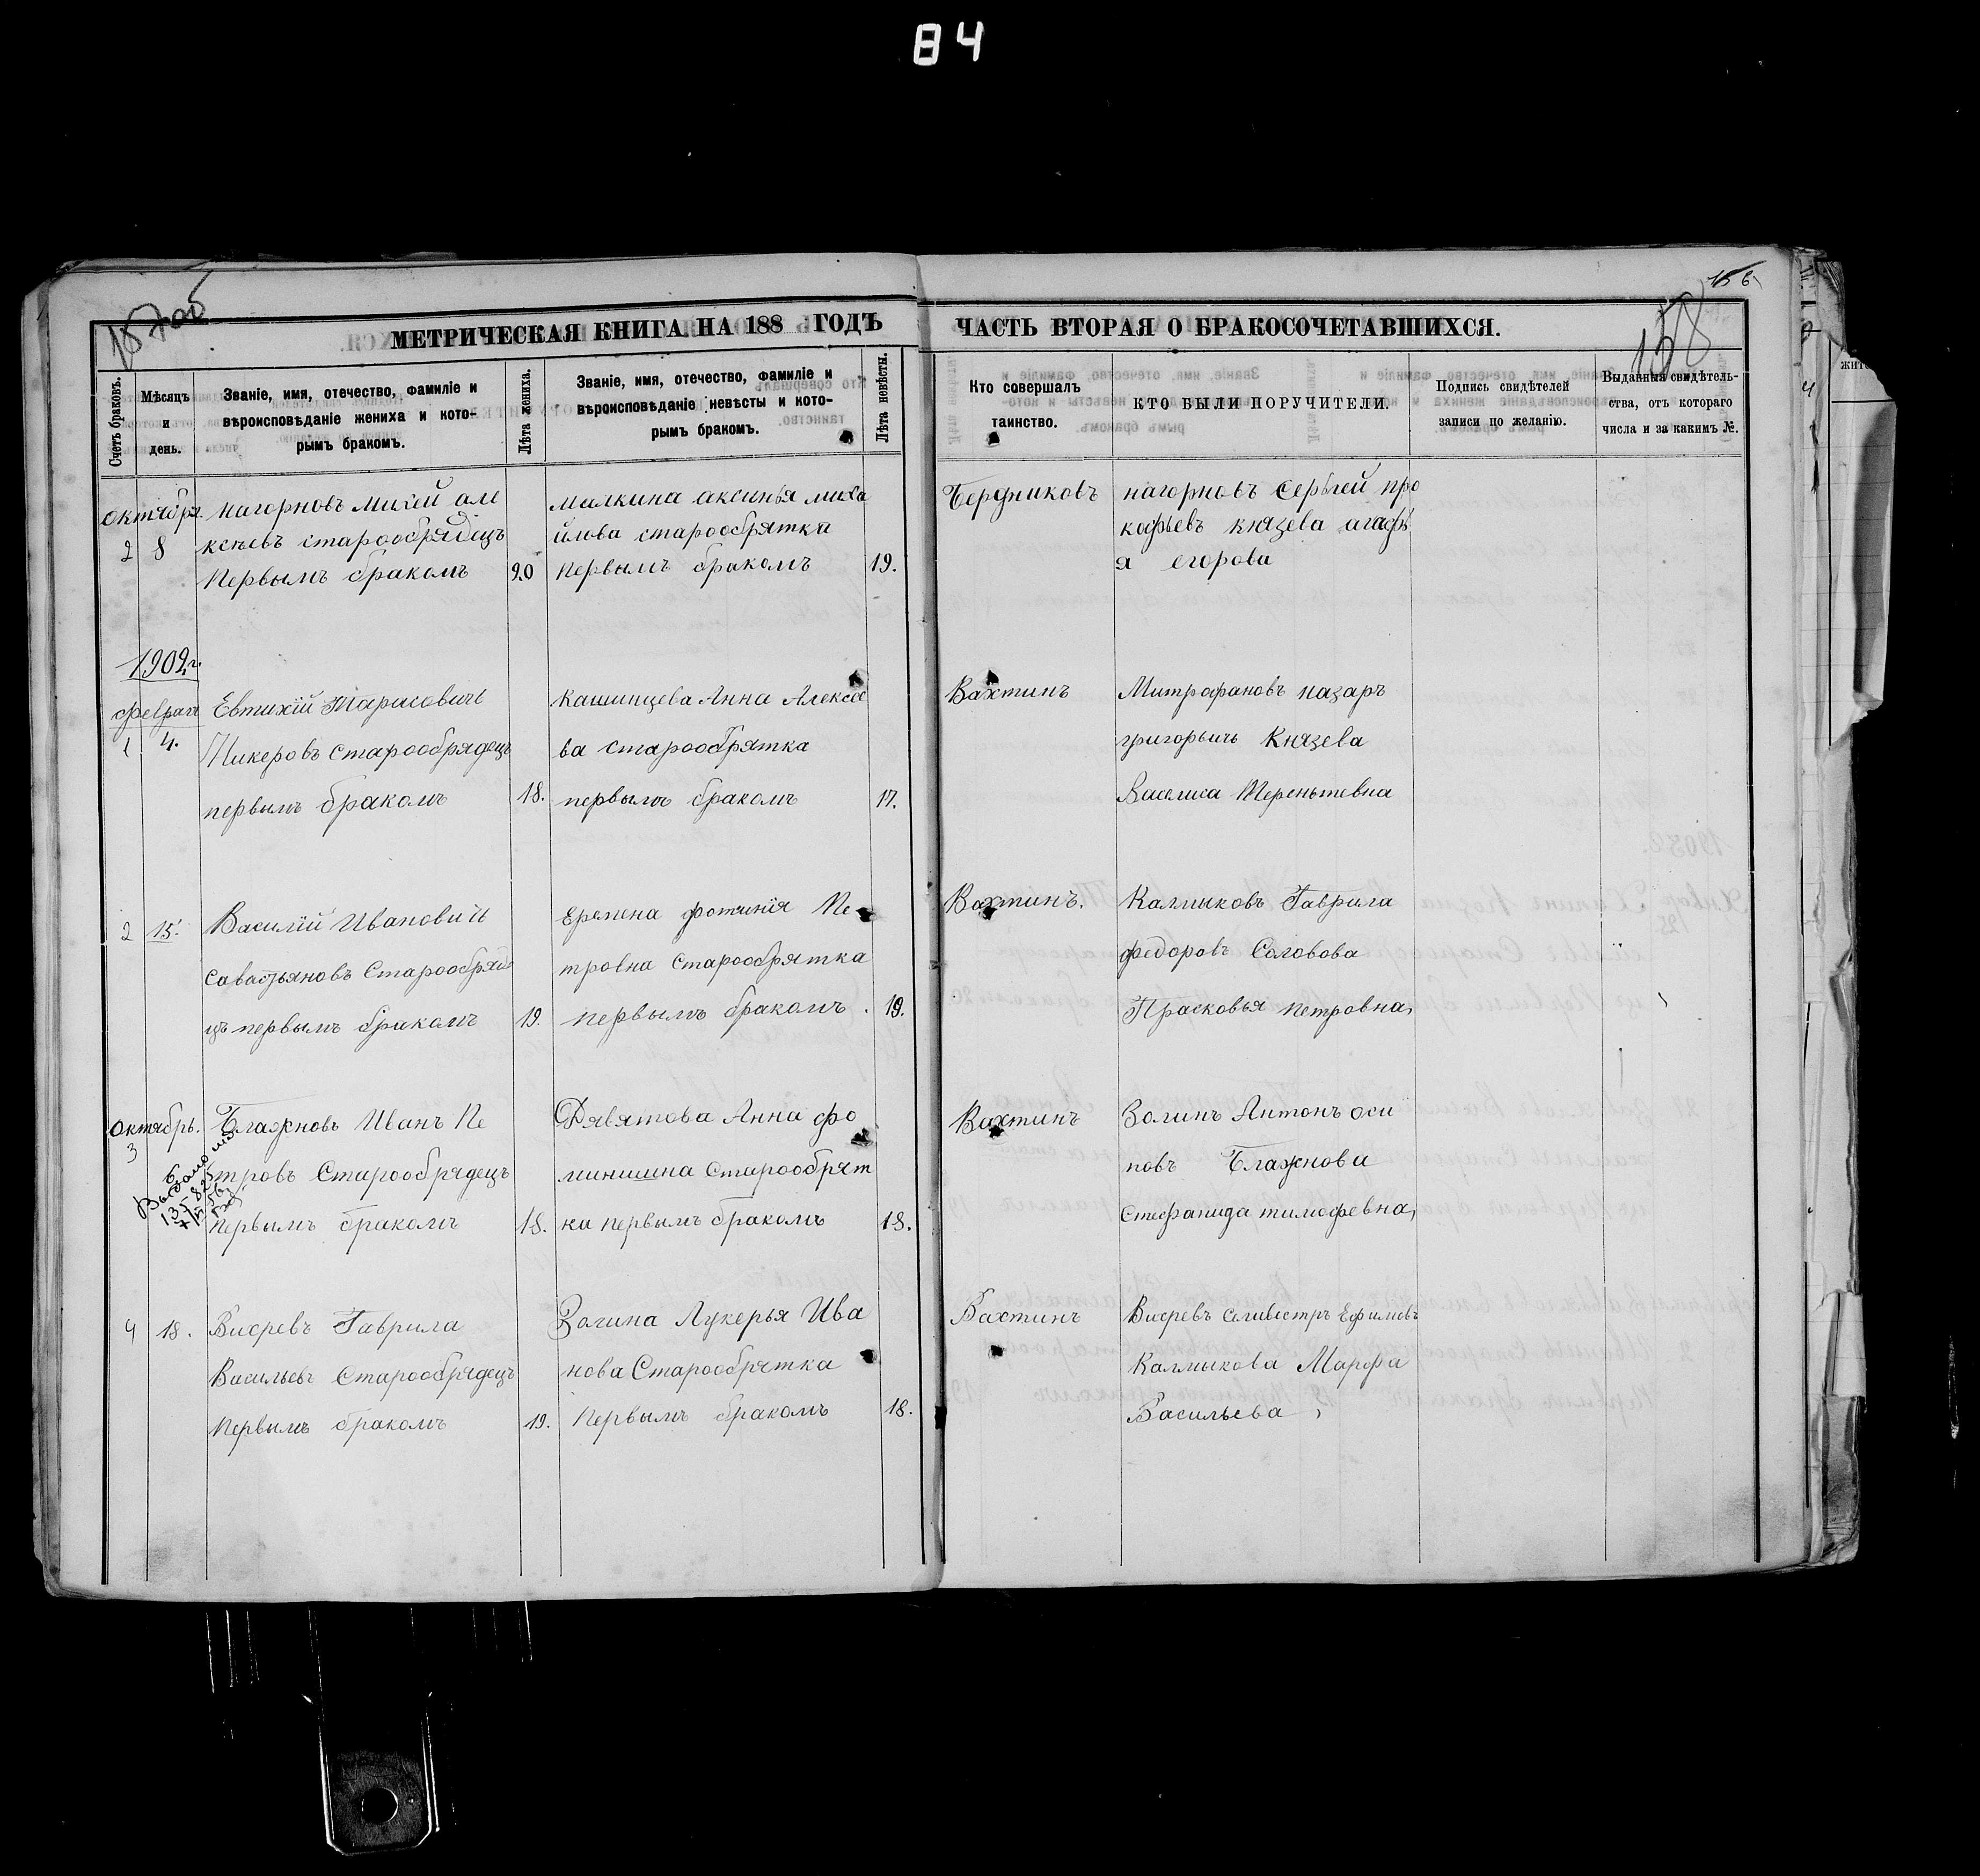 84
157об
156
158
МЕТРИЧЕСКАЯ КНИГА НА 188 ГОДЪ
ЧАСТЬ ВТОРАЯ О БРАКОСОЧЕТАВШИХСЯ.
Счетъ браковъ.
Мѣсяцъ
и
день.
Званіе, имя, отечество, фамиліе и
вѣроисповѣданіе жениха и кото-
рымъ бракомъ.
Лѣта жениха.
Званіе, имя, отечество, фамиліе и
вѣроисповѣданіе невѣсты и кото-
рымъ бракомъ.
Лѣта невѣсты.
Кто совершалъ
таинство.
КТО БЫЛИ ПОРУЧИТЕЛИ.
Подпись свидѣтелей
записи по желанію.
Выданныя свидѣтель-
ства, отъ котораго
числа и за какимъ №.
Октября
2 8
нагорновъ михей але
ксѣевъ старообрядецъ
Первымъ бракомъ 20
малкина аксинья миха
йлова старообрятка
первымъ бракомъ 19.
Бердниковъ
нагорновъ Сергей про
кофьевъ князева агафь
я егорова
1902 г.
февраля
1 4.
Евтихій Тарасовичь
Пикеровъ старообрядецъ
первымъ бракомъ 18.
кашинцева Анна Алексее
ва старообрятка
первымъ бракомъ 17.
Вахтинъ
Митрофановъ назаръ
григорьичь Князева
Василиса Терентевна
2 15.
Василий Ивановичь
Савастьяновъ Старообряде
цъ первымъ бракомъ 19.
Еремена фотинія Пе
тровна Старообрятка
первымъ бракомъ. 19.
Вахтинъ.
Калмыковъ Гаврила
федоровъ Соловова
Прасковья петровна,
Октябрь.
3 6
Блажновъ Иванъ Пе
тровъ Старообрядецъ
первымъ бракомъ 18.
Девятова Анна фо
минишна Старообрят
ка первымъ бракомъ 18.
Вахтинъ
Золинъ Антонъ оси
повъ Блажнова
Стефанида тимофевна,
4 18.
Висревъ Гаврила
Васильевъ Старообрядецъ
Первымъ бракомъ 19.
Золина Лукерья Ива
нова Старообрятка
Первымъ бракомъ 18.
Вахтинъ
Висревъ Селивестръ Ефимовъ
Калмыкова Марфа
Васильева,